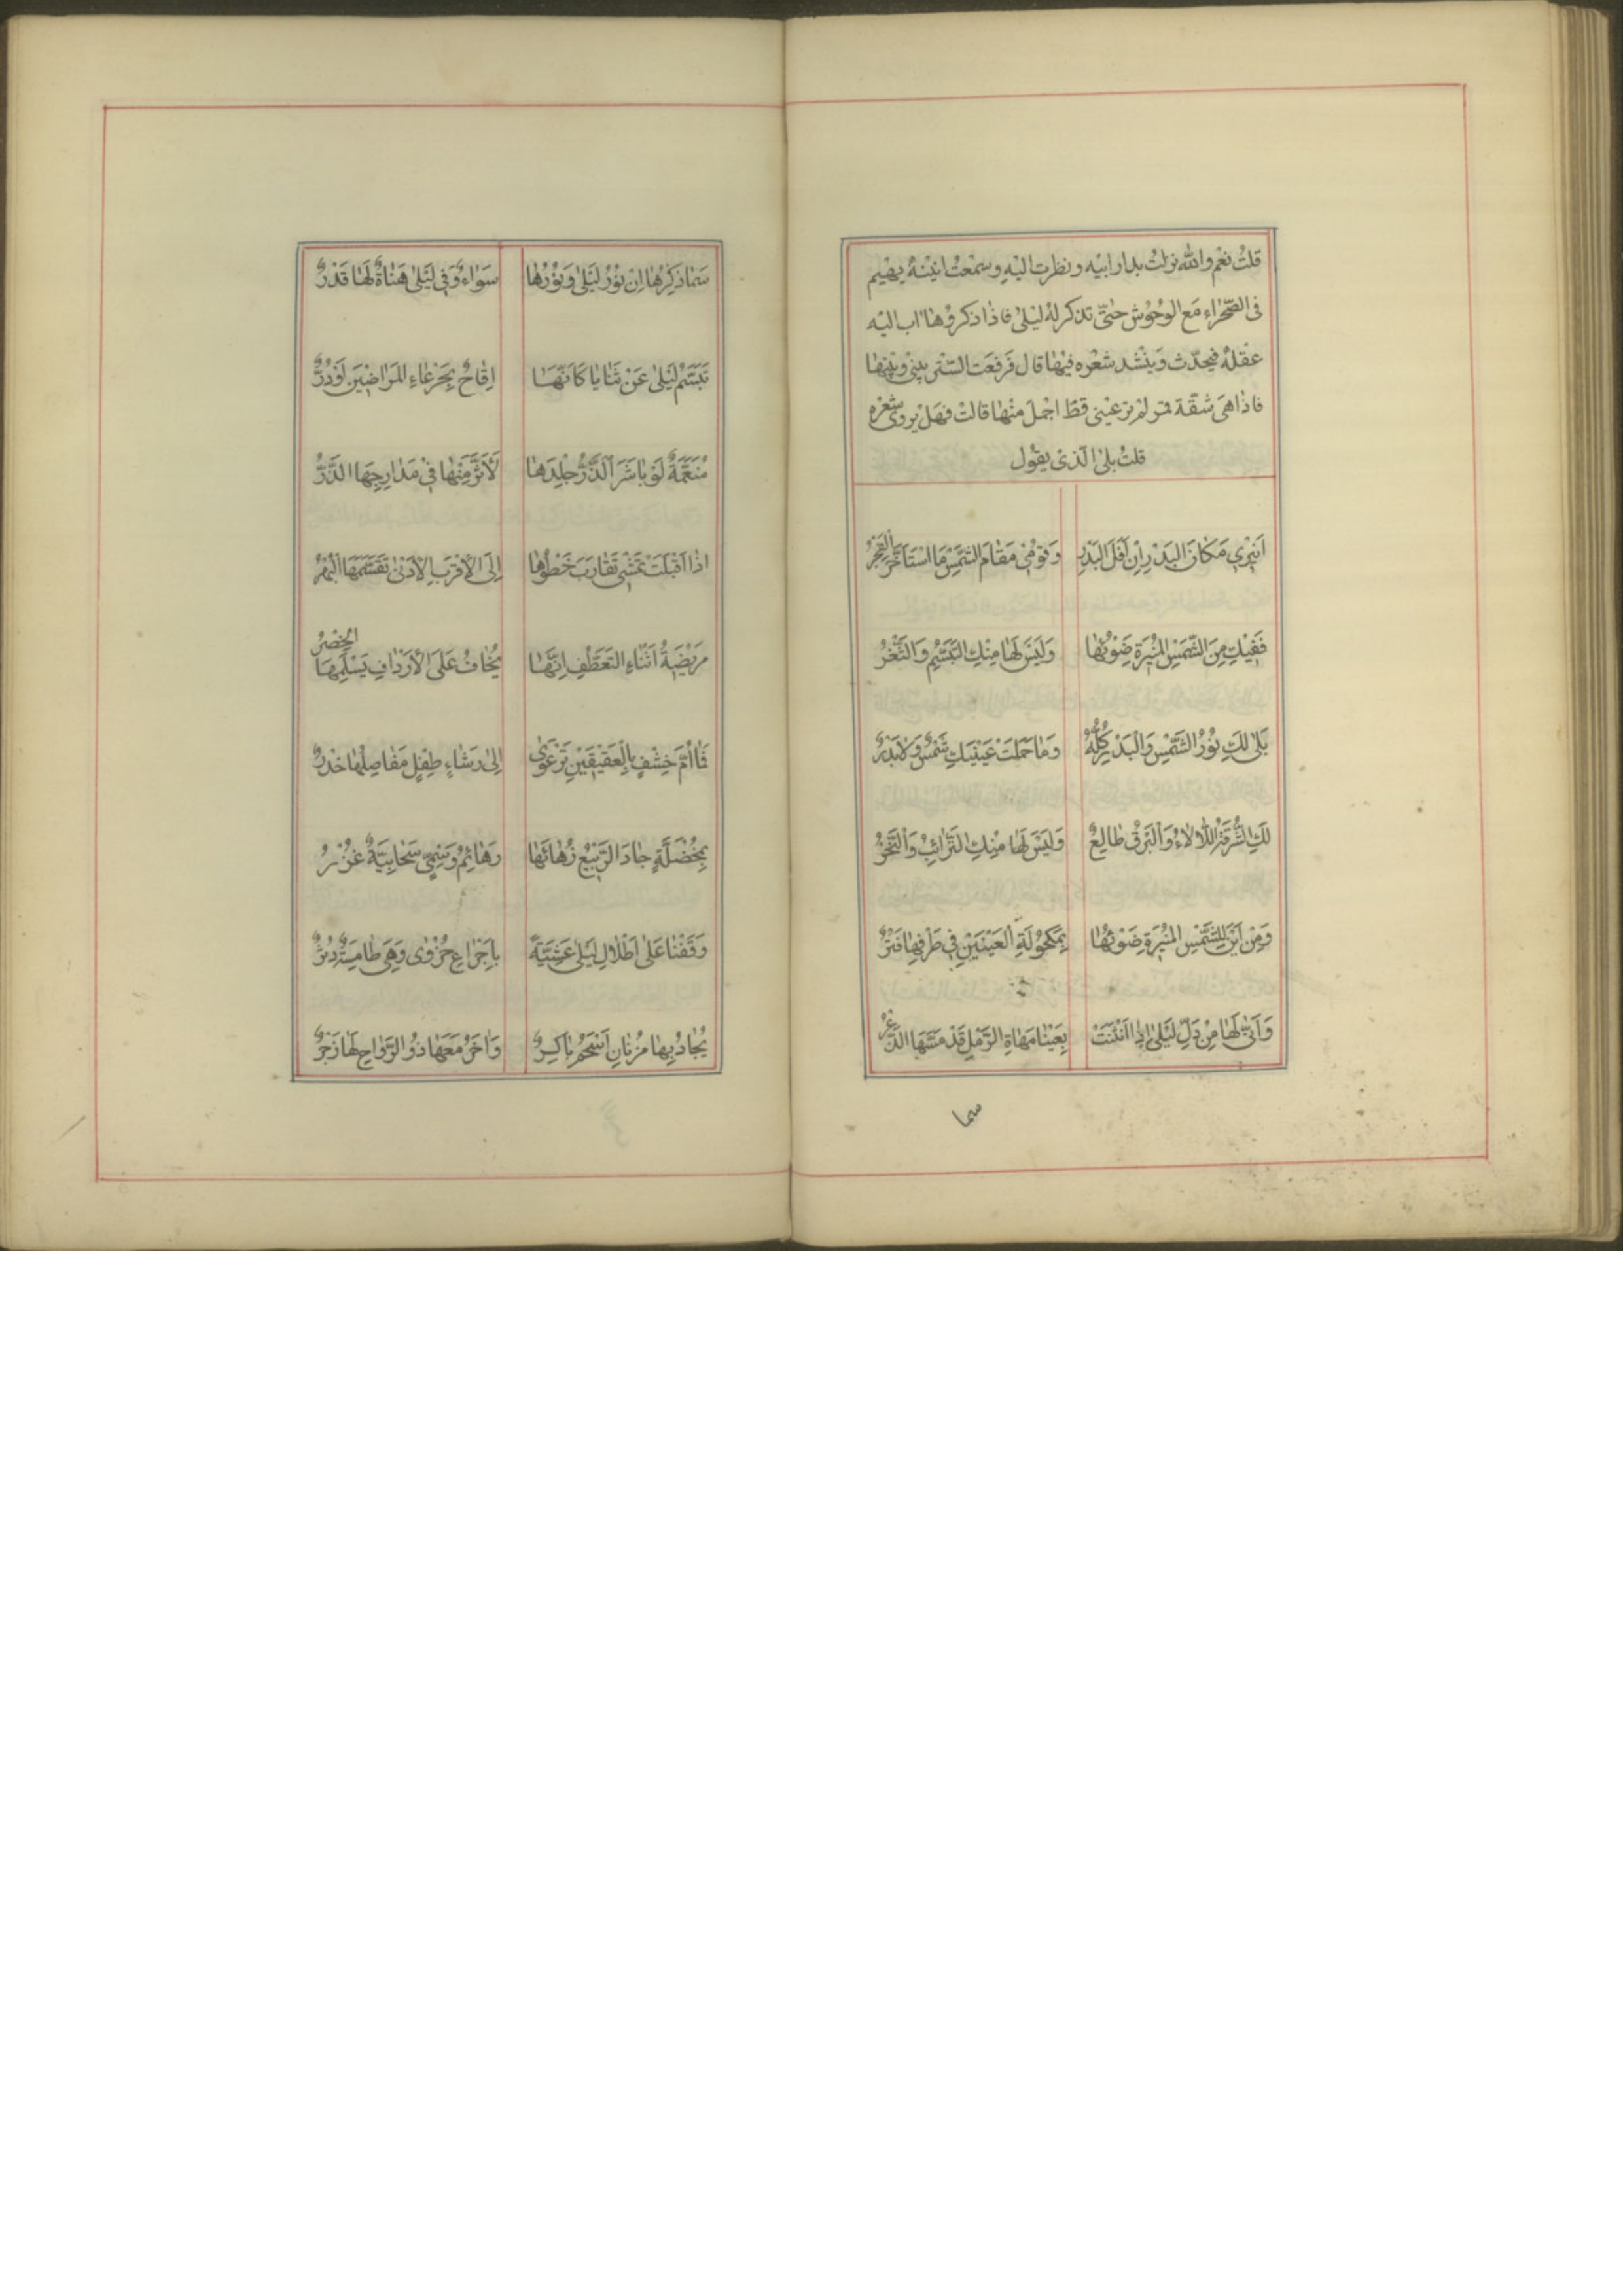 قلتُ نعم والله نزلتُ بدار ابيه ونظرت اليهِ وسمعتُ انينهُ يهيم
فى الصّحراء مَع الوحُوش حتّى تذكر لهُ ليلى فاذا ذكروُها اب اليه
عقلهُ فيحدّث وَينشد شعْره فيهَا قال فَرفعَت السّتر بينى وبينها
فاذا هىَ شقّة قمر لم ترَ عينى قطّ اجملَ منها قالت فهل يروى شعْره
قلتُ بلى الّذى يقوُل
اَنيرى مَكانَ البَدْرِ اِن اَفَلَ البَدرُ وَقوُمى مَقامَ الشَّمسِ مَا اسْتَأخَرَ الفَجْرُ
فَفيكِ مِنَ الشَّمسِ المُنيرَةِ ضَوئُها وَليَسَ لَها مِنكِ التَّبَسُّمُ وَالثَّغْرُ
بَلى لَكِ نوُرُ الشَّمْسِ وَالبَدْرِ كُلُّهُ وَما حَمَلَت عَينَيكِ شَمْسٌ وَلا بَدْرٌ
لَكِ الشُّرقَةُ اللَّألاءُ وَالبَرقُ طالِعٌ وَليَسَ لَها مِنكِ التَّرائِبُ وَالنَّحْرُ
وَمِن اَينَ لِلشَّمْسِ المُنيرَةِ ضَوئُها بِمَكحوُلَةِ العَيْنَينِ فى طَرفِها فَتْرٌ
وَاَنّى لَها مِنْ دَلِّ ليَلى اِذا انْثَنَتْ بِعَيْنا مَهاةِ الرَّملِ قَدْ مَسَّهَا الذُّعْرُ
سما
سَما ذكرِها اِن نوُرُ ليَلى وَنوُرُها سَواءٌ وَفى ليَلى هَناةٌ لَها قَدْرٌ
تَبَسَّمُ ليَلى عَنْ ثَنايا كَاَنَّها اِقاحٌ بِجَرْعاءِ المَراضَينِ اَوْ دُرٌّ
مُنَعَّمَةٌ لَوْ باشَرَ الذَّرُّ جِلدَها لَأَثَّرَ مِنها فى مَدارِجِهَا الذَّرُّ
اذا اَقبَلَتْ تَمْشى تَقارَبَ خَطْوُها اِلَى الأَقرَبِ الأَدْنى تَقَسَّمَهَا البُهْرُ
مَريضَةُ اَثناءِ التَّعَطُّفِ اِنَّها يُخافُ عَلَى الأَردافِ يَسْلَمُهَا الخِصْرُ
فَما اُمُّ خِشْفٍ بِالعَقيقَينِ تَرْعَوى اِلى رَشاءٍ طِفْلٍ مَفاصِلُها خَدْرٌ
بِمُخْضَلَّةٍ جادَ الرَّبيعُ زُهائَها رَهائِمُ وَسْمِىٍّ سَحابِيَّةٌ غُزْرُ
وَقَفْنا عَلى اَطْلالِ ليَلى عَشِيَّةً بِأَجْزاعِ حُزْوى وَهِىَ طامِسَةٌ دُثْرٌ
يُجادُ بِها مُزْنانِ اَسْحَمُ باكِرٌ وَاخَرُ مَعَها ذُو الرَّواحِ لَها زَجْرٌ